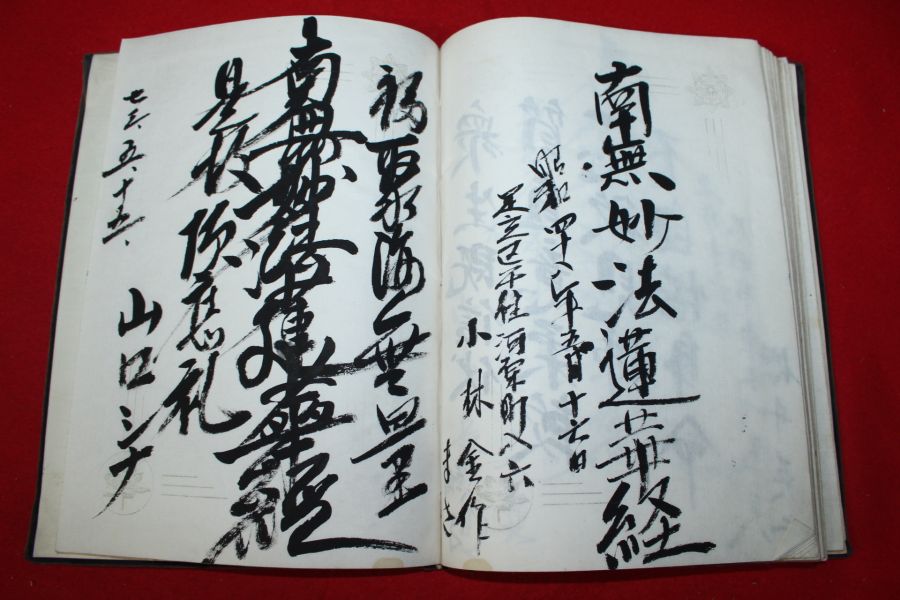 南無妙法蓮華経
昭和四十八年五月十六日
足立区千住河原町八六
小林金作
まさ
福聚海無量
南無妙法蓮華経
是故頂應礼
七三、五、十五、
山口シナ